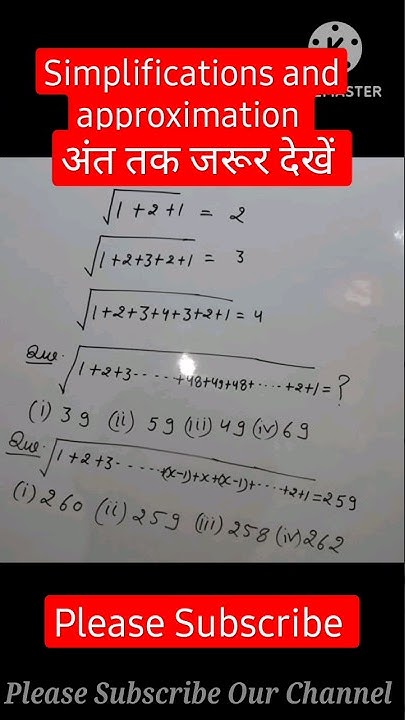 Simplifications and
approximation
MASTER
अंत तक जरूर देखें
√1+2+1 = 2
√1+2+3+2+1 = 3
√1+2+3+4+3+2+1 = 4
Que. √1+2+3-----+48+49+48+-----+2+1 = ?
(i) 39 (ii) 59 (iii) 49 (iv) 69
Que. √1+2+3-----+(x-1)+x+(x-1)+-----+2+1 = 259
(i) 260 (ii) 259 (iii) 258 (iv) 262
Please Subscribe
Please Subscribe Our Channel